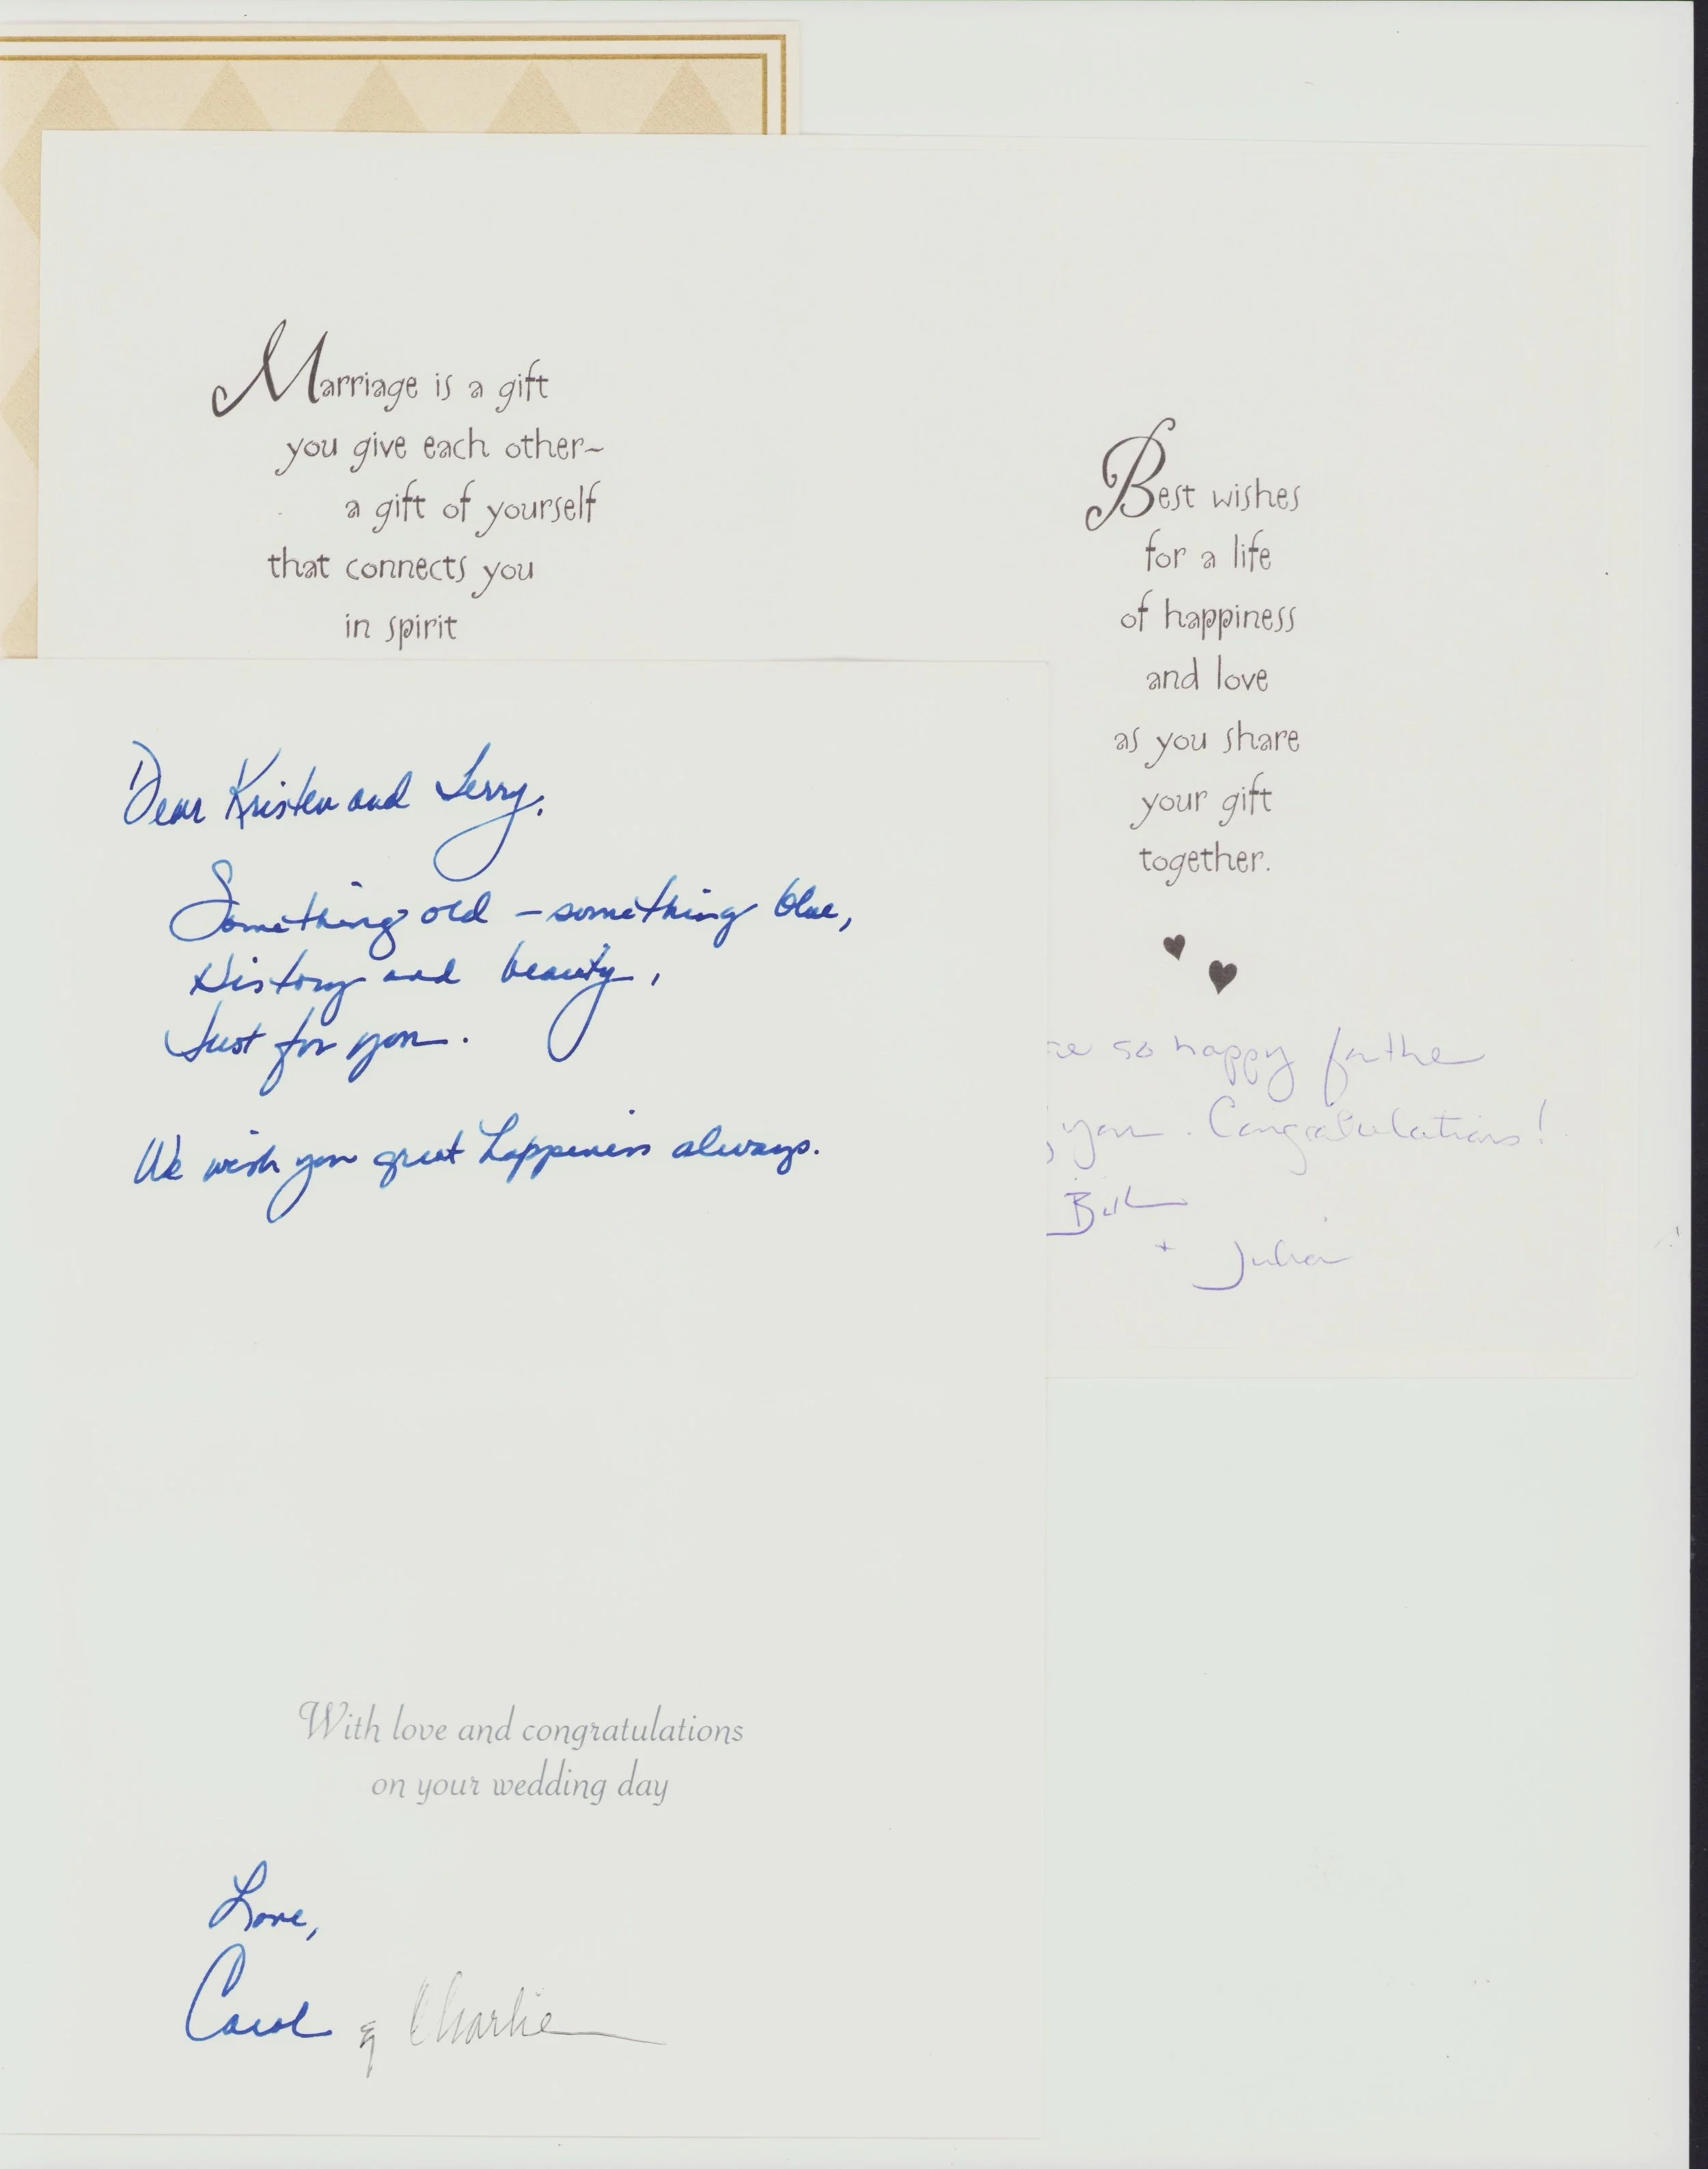 Marriage is a gift
you give each other~
a gift of yourself
that connects you
in spirit
Best wishes
for a life
of happiness
and love
as you share
your gift
together.
so happy for the
you. Congratulations!
Bill
+ Julia
Dear Kristen and Jerry,
Something old – something blue,
History and beauty,
Just for you.
We wish you great happiness always.
With love and congratulations
on your wedding day
Love,
Carol & Charlie